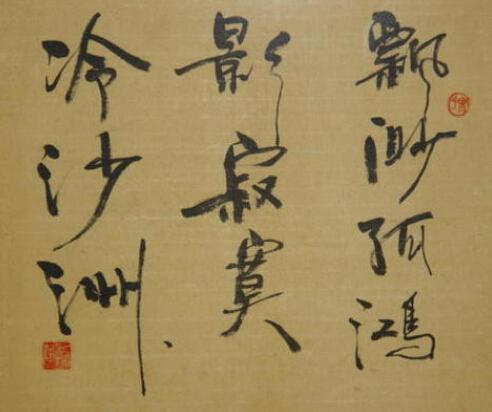 飘渺孤鸿
影寂寞
冷沙洲